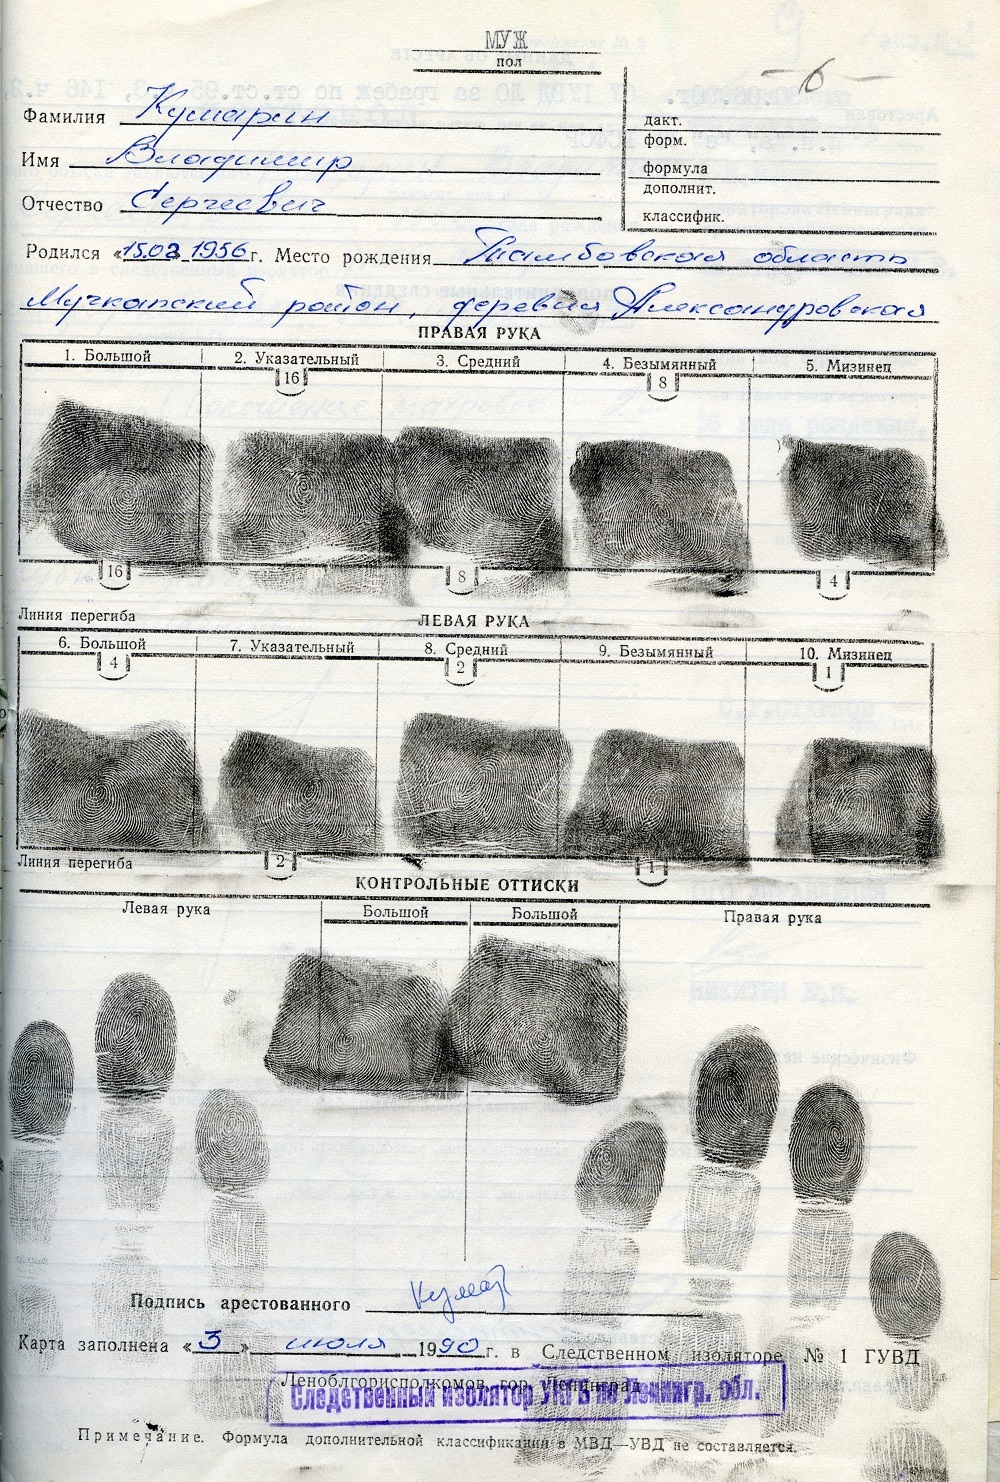 МУЖ
пол
6
Фамилия Кумарин
Имя Владимир
Отчество Сергеевич
дакт.
форм.
формула
дополнит.
классифик.
Родился «15.02 1956 г. Место рождения Тамбовская область
Мучкапский район, деревня Александровская
ПРАВАЯ РУКА
1. Большой 2. Указательный 3. Средний 4. Безымянный 5. Мизинец
16 8
16 8 4
Линия перегиба
ЛЕВАЯ РУКА
6. Большой 7. Указательный 8. Средний 9. Безымянный 10. Мизинец
4 2 1
2 1
Линия перегиба
КОНТРОЛЬНЫЕ ОТТИСКИ
Левая рука Большой Большой Правая рука
Подпись арестованного Кумар
Карта заполнена «3» июля 1990 г. в Следственном изоляторе № 1 ГУВД
Леноблгорисполкомов, гор. Ленинград
Следственный изолятор УКГБ по Ленингр. обл.
Примечание. Формула дополнительной классификации в МВД—УВД не составляется.